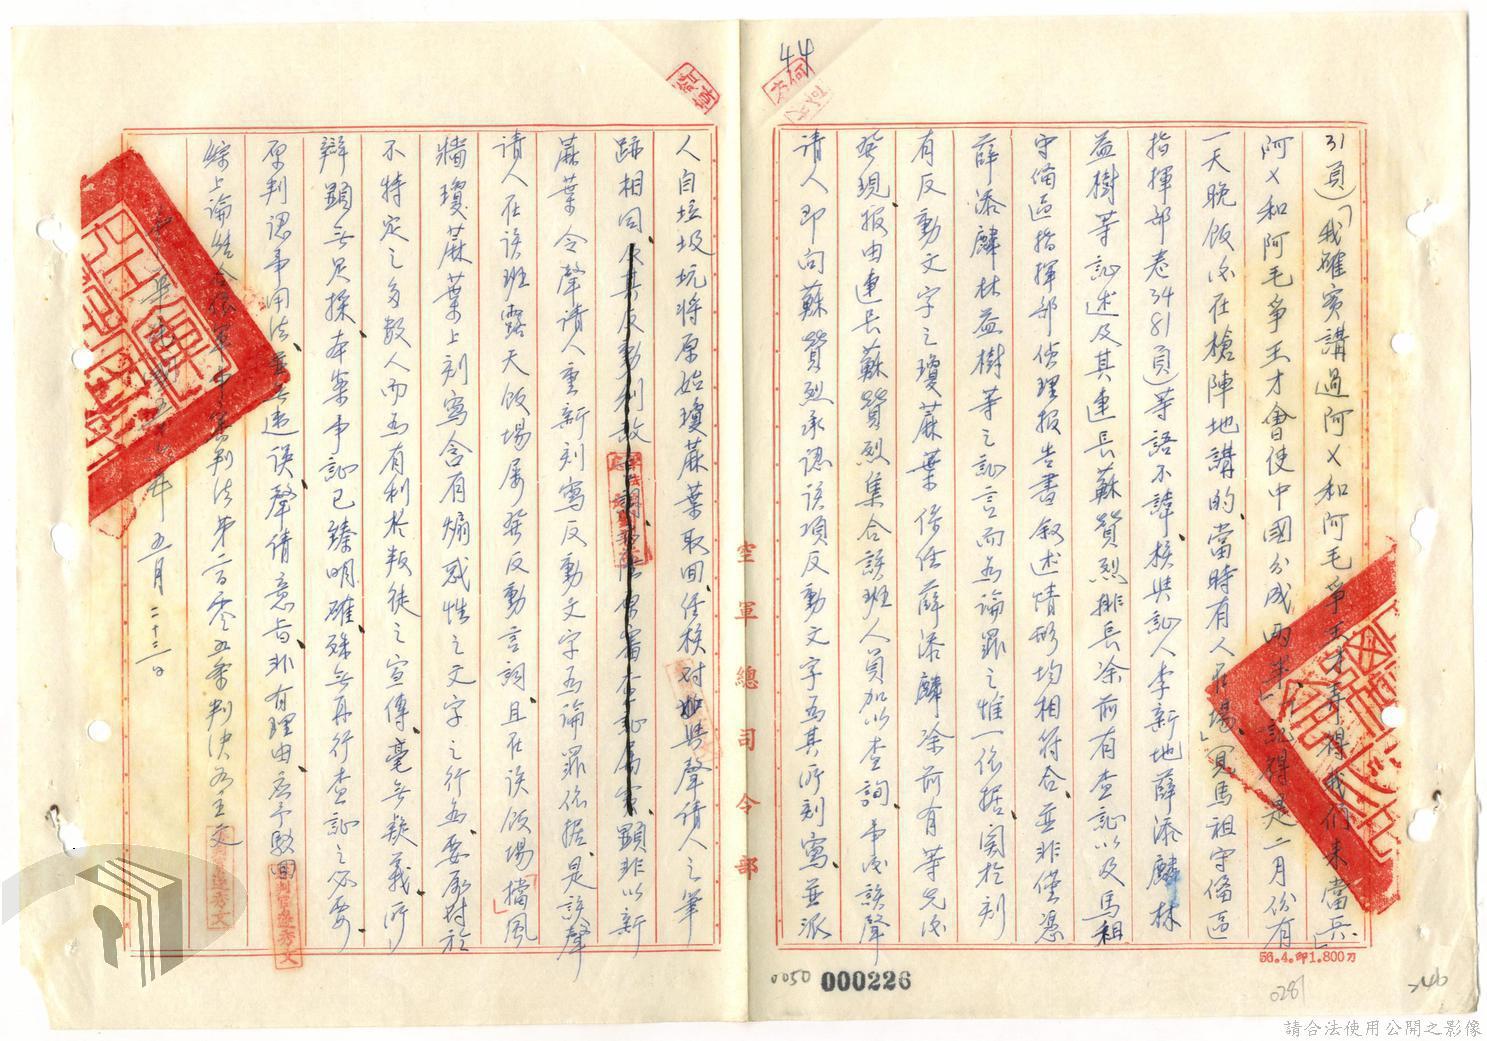 44
31頁)「我確實講過阿乂和阿毛爭王才弄得我們來當兵」
阿乂和阿毛爭王才會使中國分成兩半」「記得是二月份有
一天晚飯後在槍陣地講的、當時有人在場」(見馬祖守備區
指揮部卷3481頁)等語不諱、核與証人李新地薛添麟林
益樹等証述及其連長蘇贊烈排長涂前有查証以及馬祖
守備區指揮部偵理報告書叙述情形均相符合、並非僅憑
薛添麟林益樹等之証言而為論罪之惟一依據、関於刻
有反動文字之瓊蔴葉係任薛添麟涂前有等先後
發現、報由連長蘇贊烈集合該班人員加以查詢、事後該聲
請人即向蘇贊烈承認該項反動文字為其所刻寫、並派
空軍總司令部
人自垃圾坑將原始瓊蔴葉取回、任核对與聲請人之筆
跡相同、顯非以新
蔴葉令聲請人重新刻寫反動文字為論罪依据、是該聲
請人在該班露天飯場屢發反動言詞、且在該飯場「擋風
牆」瓊蔴葉上刻寫含有煽惑性之文字之行為、要屬对於
不特定之多数人而為有利於叛徒之宣傳、毫無疑義、所
辯顯無足採、本案事証已臻明確、殊無再行查証之必要、
原判認事用法、並無違誤、聲請意旨、非有理由、应予駁回
綜上論結、合依軍事審判法第二百零五條判決如主文
五月二十三日
56.4.印1.800刀
0050 000226
0281
246
請合法使用公開之影像